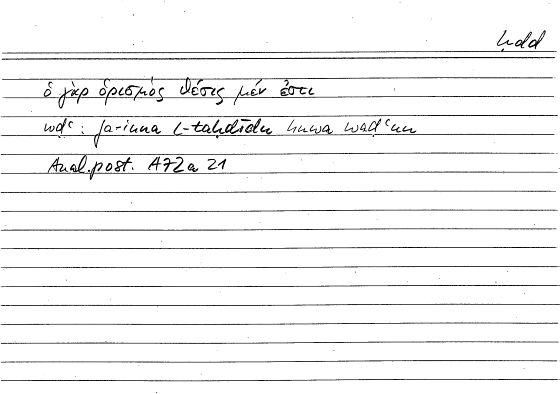 ḥdd
ὁ γὰρ ὁρισμός θέσις μέν ἐστι
wḍʿ: fa-inna l-taḥdīda huwa waḍʿun
Anal. post. A72a 21